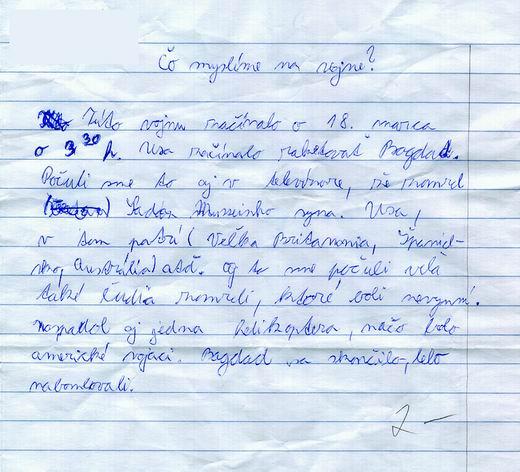 Čo myslíme na vojne?
Túto vojnu načínalo o 18. marca
o 3 30 h. Usa načínalo raketovať Bagdad.
Počuli sme to aj v televízore, že zomrel
Sadám Husseinho syna. Usa,
v tom patrí (Veľka Britannia, Španiel-
sko, Austrália) atď. aj to sme počuli veľa
také ľudia zomreli, ktoré boli nevynní.
napadol aj jedna helikoptera, načo bolo
americké vojaci. Bagdad sa skončilo, lebo
nabombovali.
2-